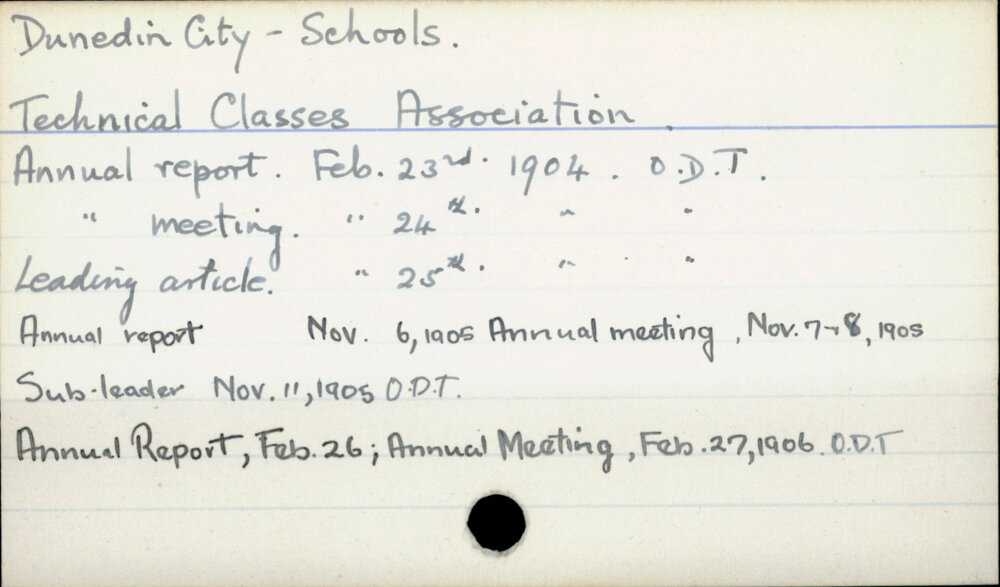 Dunedin City - Schools.
Technical Classes Association.
Annual report. Feb. 23rd. 1904. O.D.T.
" meeting. " 24th. " "
Leading article. " 25th. " "
Annual report Nov. 6, 1905 Annual meeting, Nov. 7-8, 1905
Sub-leader Nov. 11, 1905 O.D.T.
Annual Report, Feb. 26; Annual Meeting, Feb. 27, 1906. O.D.T